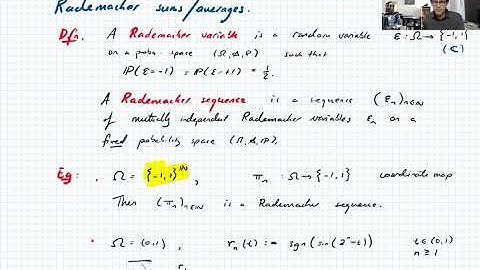 Rademacher sums/averages.
Dfn. A Rademacher variable is a random variable ε : Ω → {-1,1}
on a prob. space (Ω, A, P) such that (C)
P(ε=-1) = P(ε=+1) = 1/2.
A Rademacher sequence is a sequence (εn)n∈N
of mutually independent Rademacher variables εn on a
fixed probability space (Ω, A, P).
Eg: • Ω = {-1,1}^N, πn : Ω → {-1,1} coordinate map
Then (πn)n∈N is a Rademacher sequence.
• Ω = (0,1), rn(t) := sgn(sin(2^n πt)) t ∈ (0,1)
n ≥ 1
r1